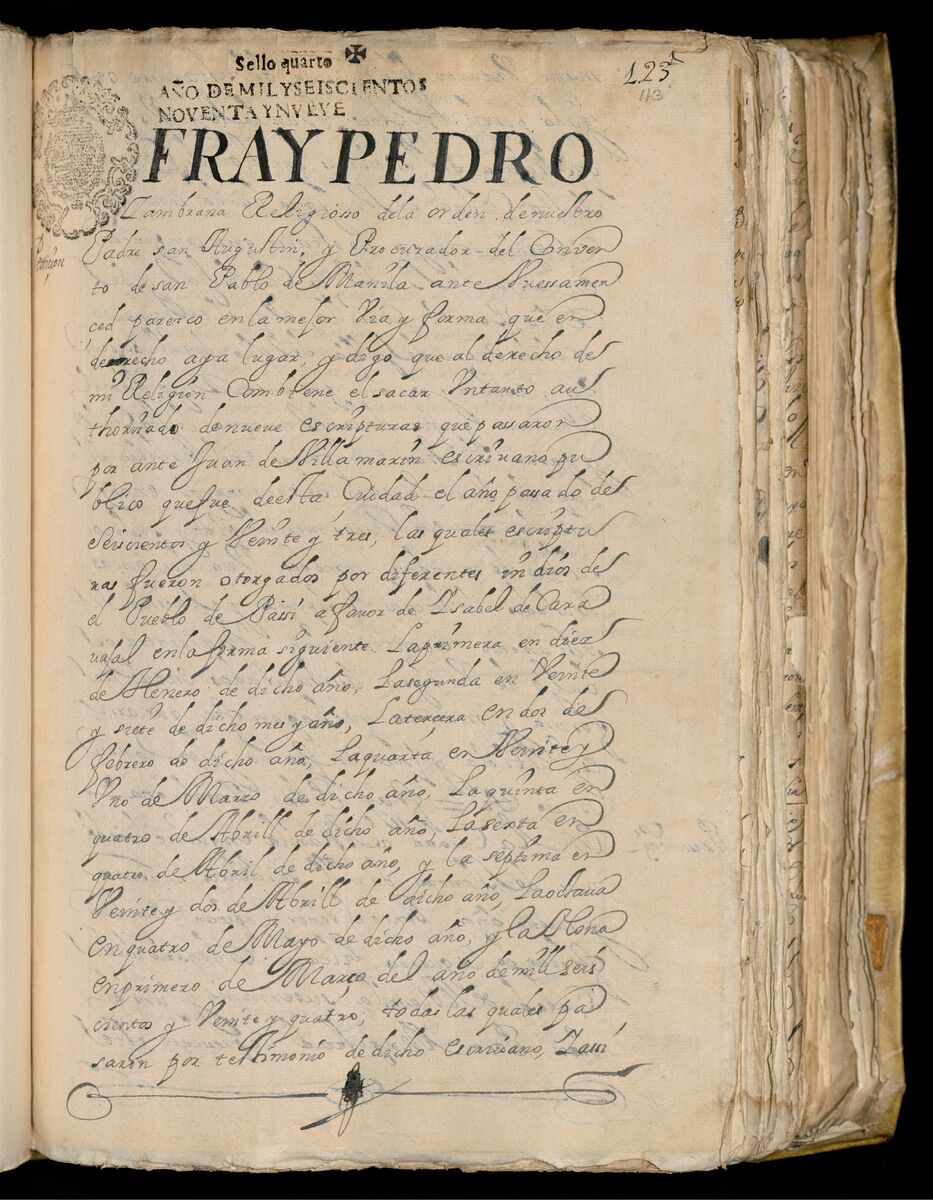 Sello quarto ✠
AÑO DE MIL Y SEISCIENTOS
NOVENTA Y NVEVE
123
113
FRAY PEDRO
Zambrana Religiosso dela orden denuestro
Padre san Augustin, y Procurador del Conven
to de san Pablo de Manila ante Vuessamer
ced parerco en la mejor Via y forma que en
derecho aya lugar y digo que al derecho de
mi Religion Combiene el sacar Vntanto au
thorirado denueve escripturas que passaron
por ante Juan de Villa marin escrivano pu
blico quefue deesta Ciudad el año passado de
Seiscientos y Veinte y tres, las quales escriptu
ras fueron otorgados por diferentes indios de
el Pueblo de Passi a favor de Ysabel de Cara
vajal enla forma siguiente Laprimera en diez
de Henero de dicho año, Lasegunda en Veinte
y siete de dicho mes y año, Latercera en dos de
febrero de dicho año, Laquarta en Veinte y
Vno de Marzo de dicho año, Laquinta en
quatro de Abrill de dicho año, Lasexta en
quatro de Abril de dicho año, y la septima en
Veinte y dos de Abrill de dicho año, Laoctava
en quatro de Mayo de dicho año, y la Nona
enprimero de Março del año de mill seis
cientos y Veinte y quatro, todas las quales pa
saron por testimonio de dicho escrivano, Zassi